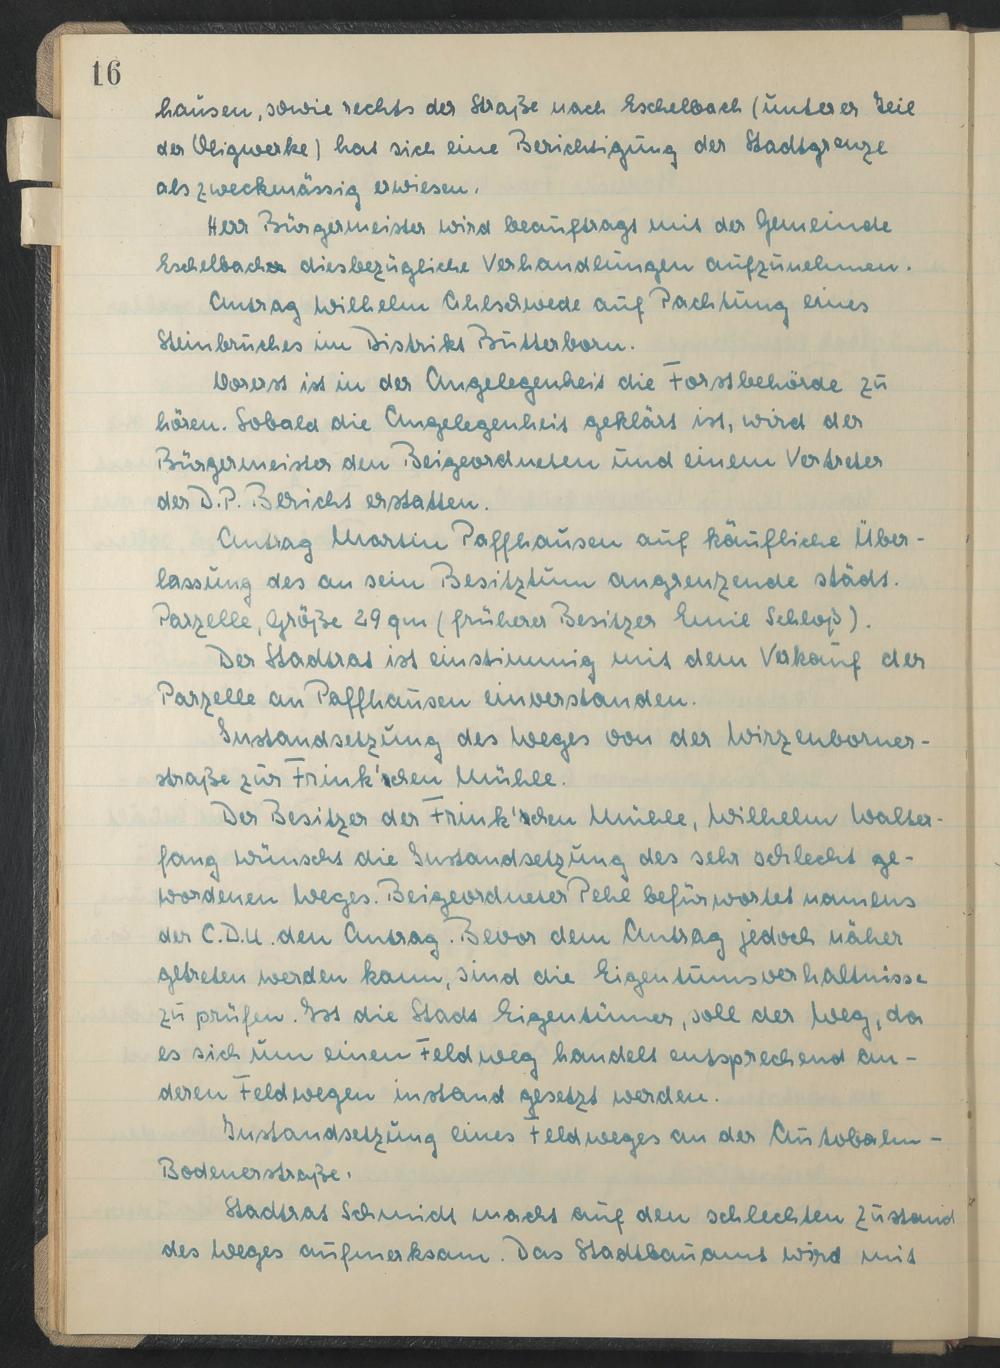 16
hausen, sowie rechts der Straße nach Eschelbach (unterer Teil
der Oligwerke) hat sich eine Berichtigung der Stadtgrenze
als zweckmässig erwiesen.
Herr Bürgermeister wird beauftragt mit der Gemeinde
Eschelbach diesbezügliche Verhandlungen aufzunehmen.
Antrag Wilhelm Ahlschwede auf Pachtung eines
Steinbruches im Distrikt Butterborn.
Vorerst ist in der Angelegenheit die Forstbehörde zu
hören. Sobald die Angelegenheit geklärt ist, wird der
Bürgermeister den Beigeordneten und einem Vertreter
der D.P. Bericht erstatten.
Antrag Martin Paffhausen auf käufliche Über-
lassung des an sein Besitztum angrenzende städt.
Parzelle, Größe 29 qm (früherer Besitzer Emil Schloß).
Der Stadtrat ist einstimmig mit dem Verkauf der
Parzelle an Paffhausen einverstanden.
Instandsetzung des Weges von der Wirzenborner-
straße zur Frink'schen Mühle.
Der Besitzer der Frink'schen Mühle, Wilhelm Walter-
fang wünscht die Instandsetzung des sehr schlecht ge-
wordenen Weges. Beigeordneter Pehl befürwortet namens
der C.D.U. den Antrag. Bevor dem Antrag jedoch näher
getreten werden kann, sind die Eigentumsverhältnisse
zu prüfen. Ist die Stadt Eigentümer, soll der Weg, da
es sich um einen Feldweg handelt entsprechend an-
deren Feldwegen instand gesetzt werden.
Instandsetzung eines Feldweges an der Autobahn-
Bodenerstraße.
Stadtrat Schmidt macht auf den schlechten Zustand
des Weges aufmerksam. Das Stadtbauamt wird mit